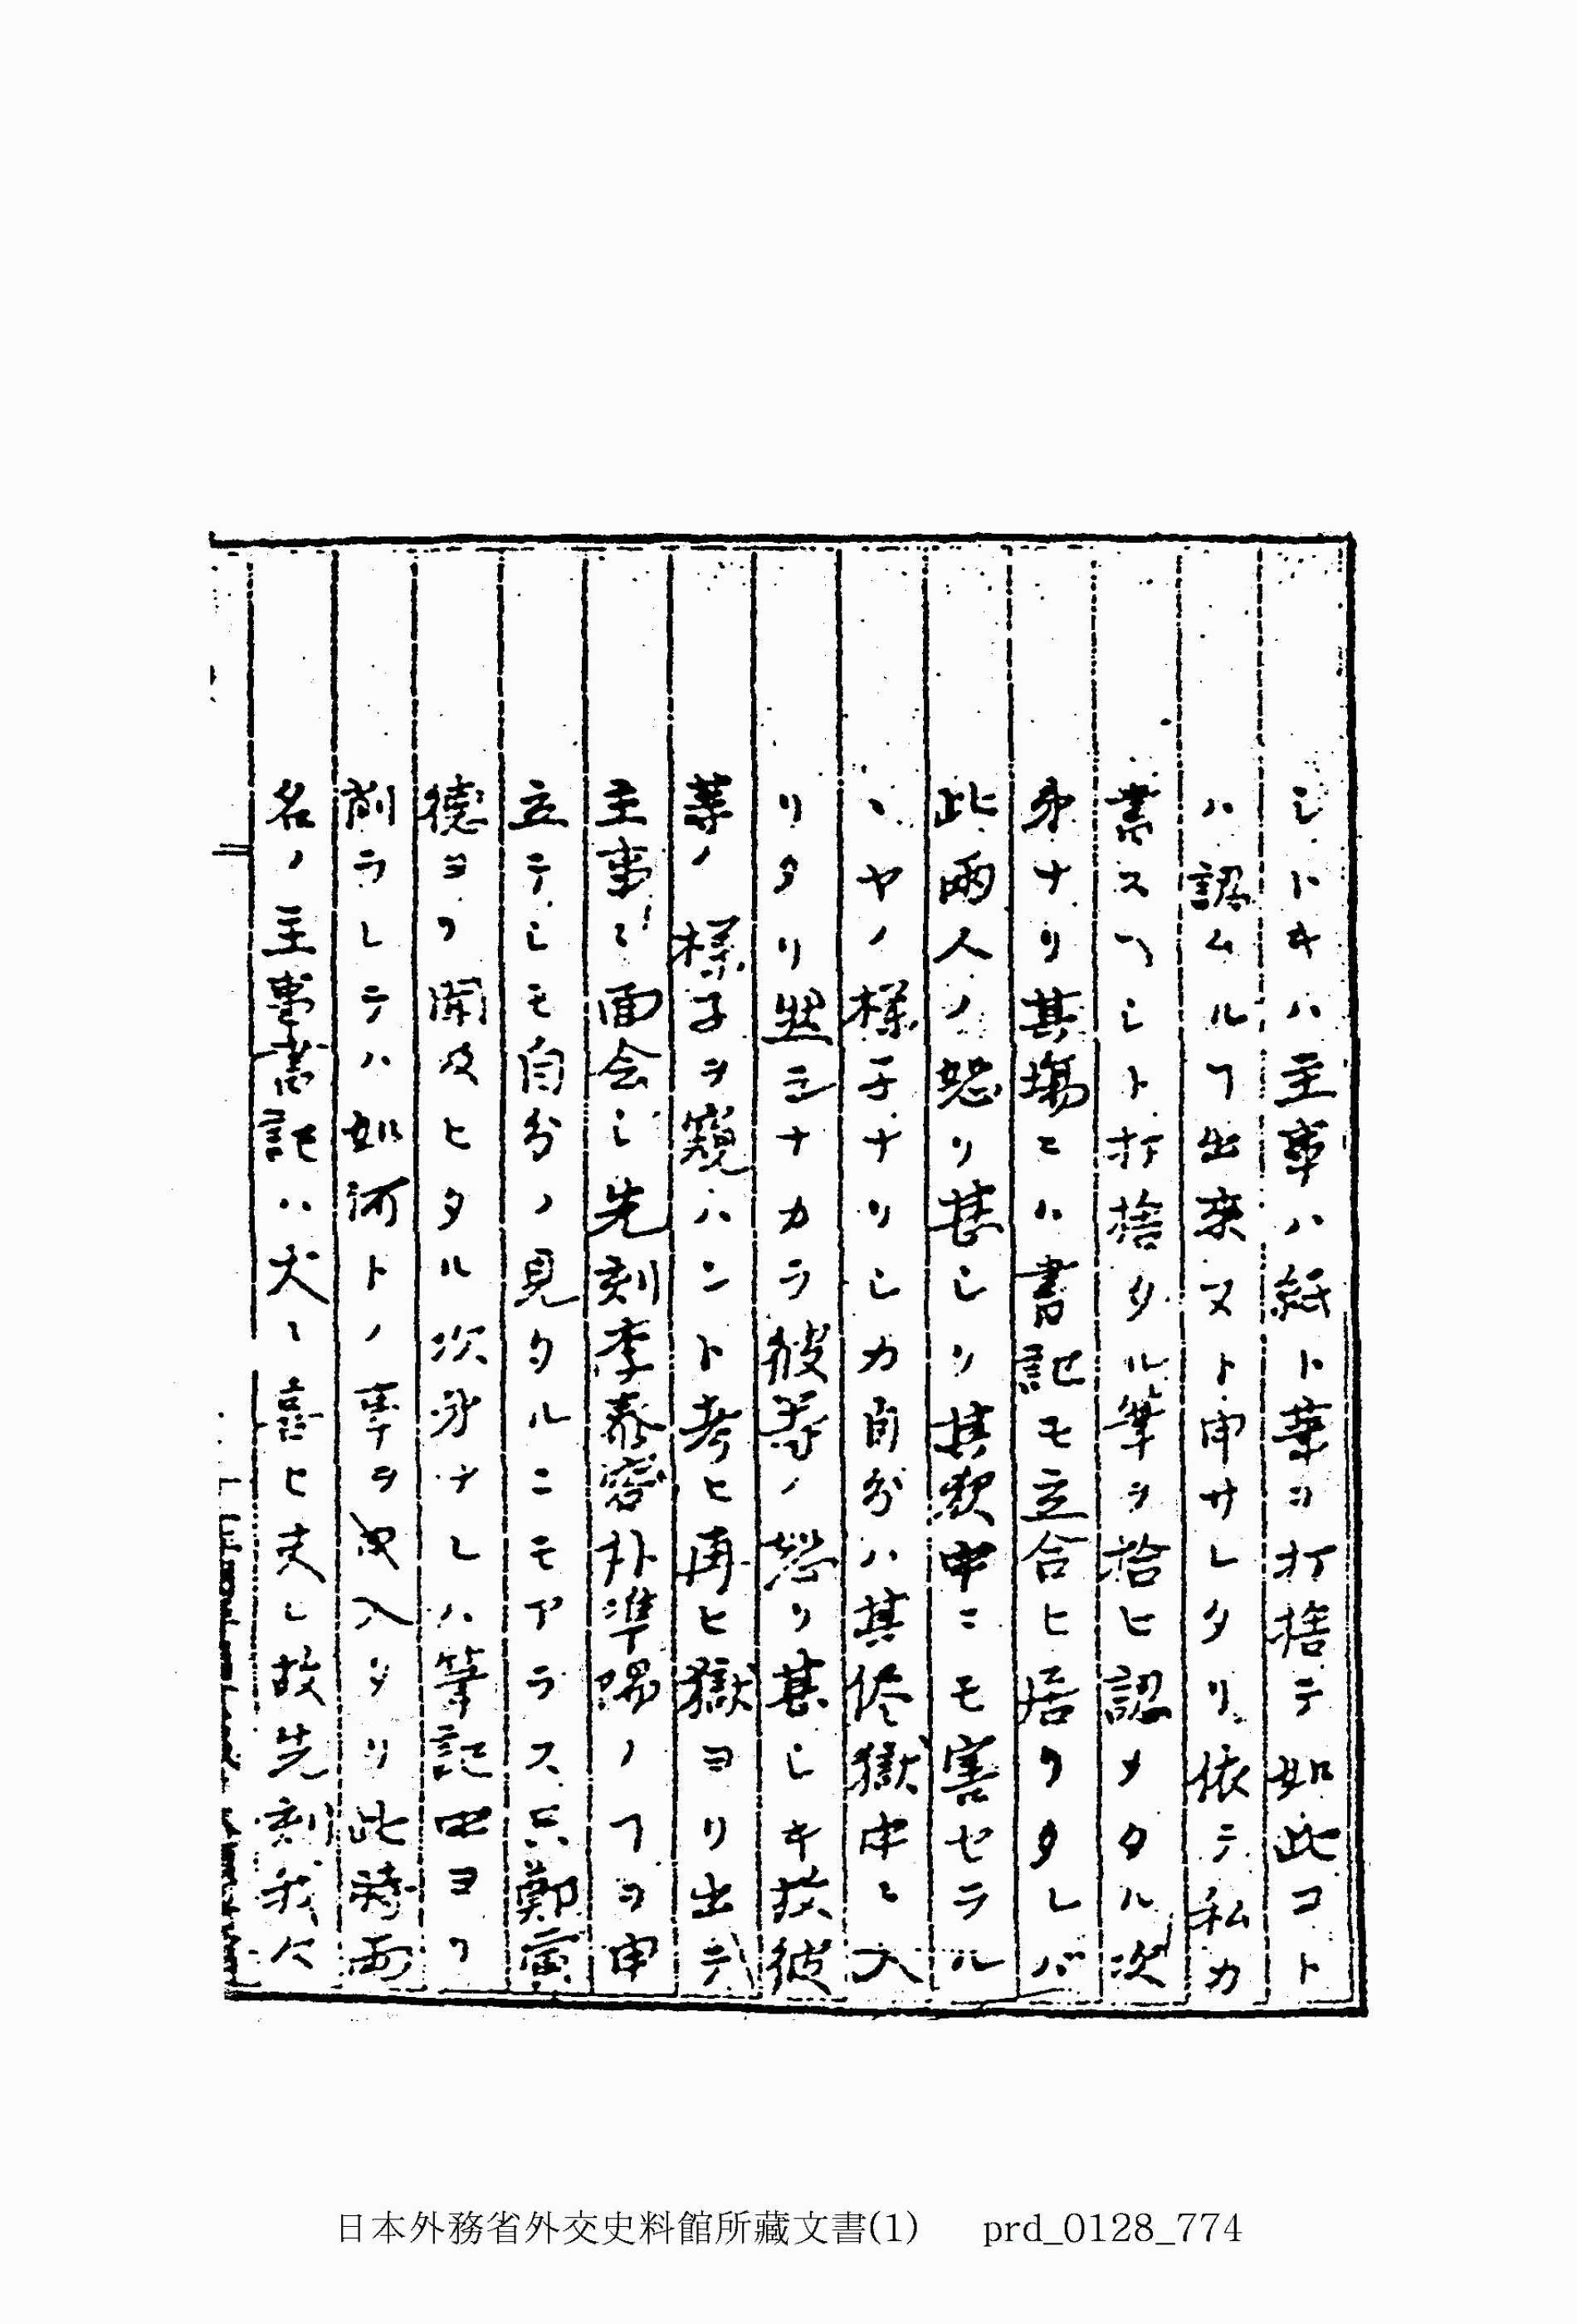 シトキハ主事ハ紙ト筆ヲ打捨テ如此コト
ハ認ムルヿ出來ヌト申サレタリ依テ私カ
書スヘシト打捨タル筆ヲ拾ヒ認メタル次
第ナリ其場ニハ書記モ立合ヒ居リタレバ
此両人ノ怒リ甚シリ其獄中ニモ害セラル
ヽヤノ様子ナリシカ自分ハ其侭獄中ニ入
リタリ然シナカラ彼等ノ怒リ甚シキ故彼
等ノ様子ヲ窺ハント考ヒ再ヒ獄ヨリ出テ
主事ニ面会シ先刻李泰容朴準陽ノヿヲ申
立テシモ自分ノ見タルニモアラス只鄭寅
徳ヨリ聞及ヒタル次第ナレハ筆記中ヨリ
削ラレテハ如何トノ事ヲ申入タリ此時両
名ノ主事書記ハ大ニ喜ヒ夫レ故先刻我々
日本外務省外交史料館所藏文書(1) prd_0128_774